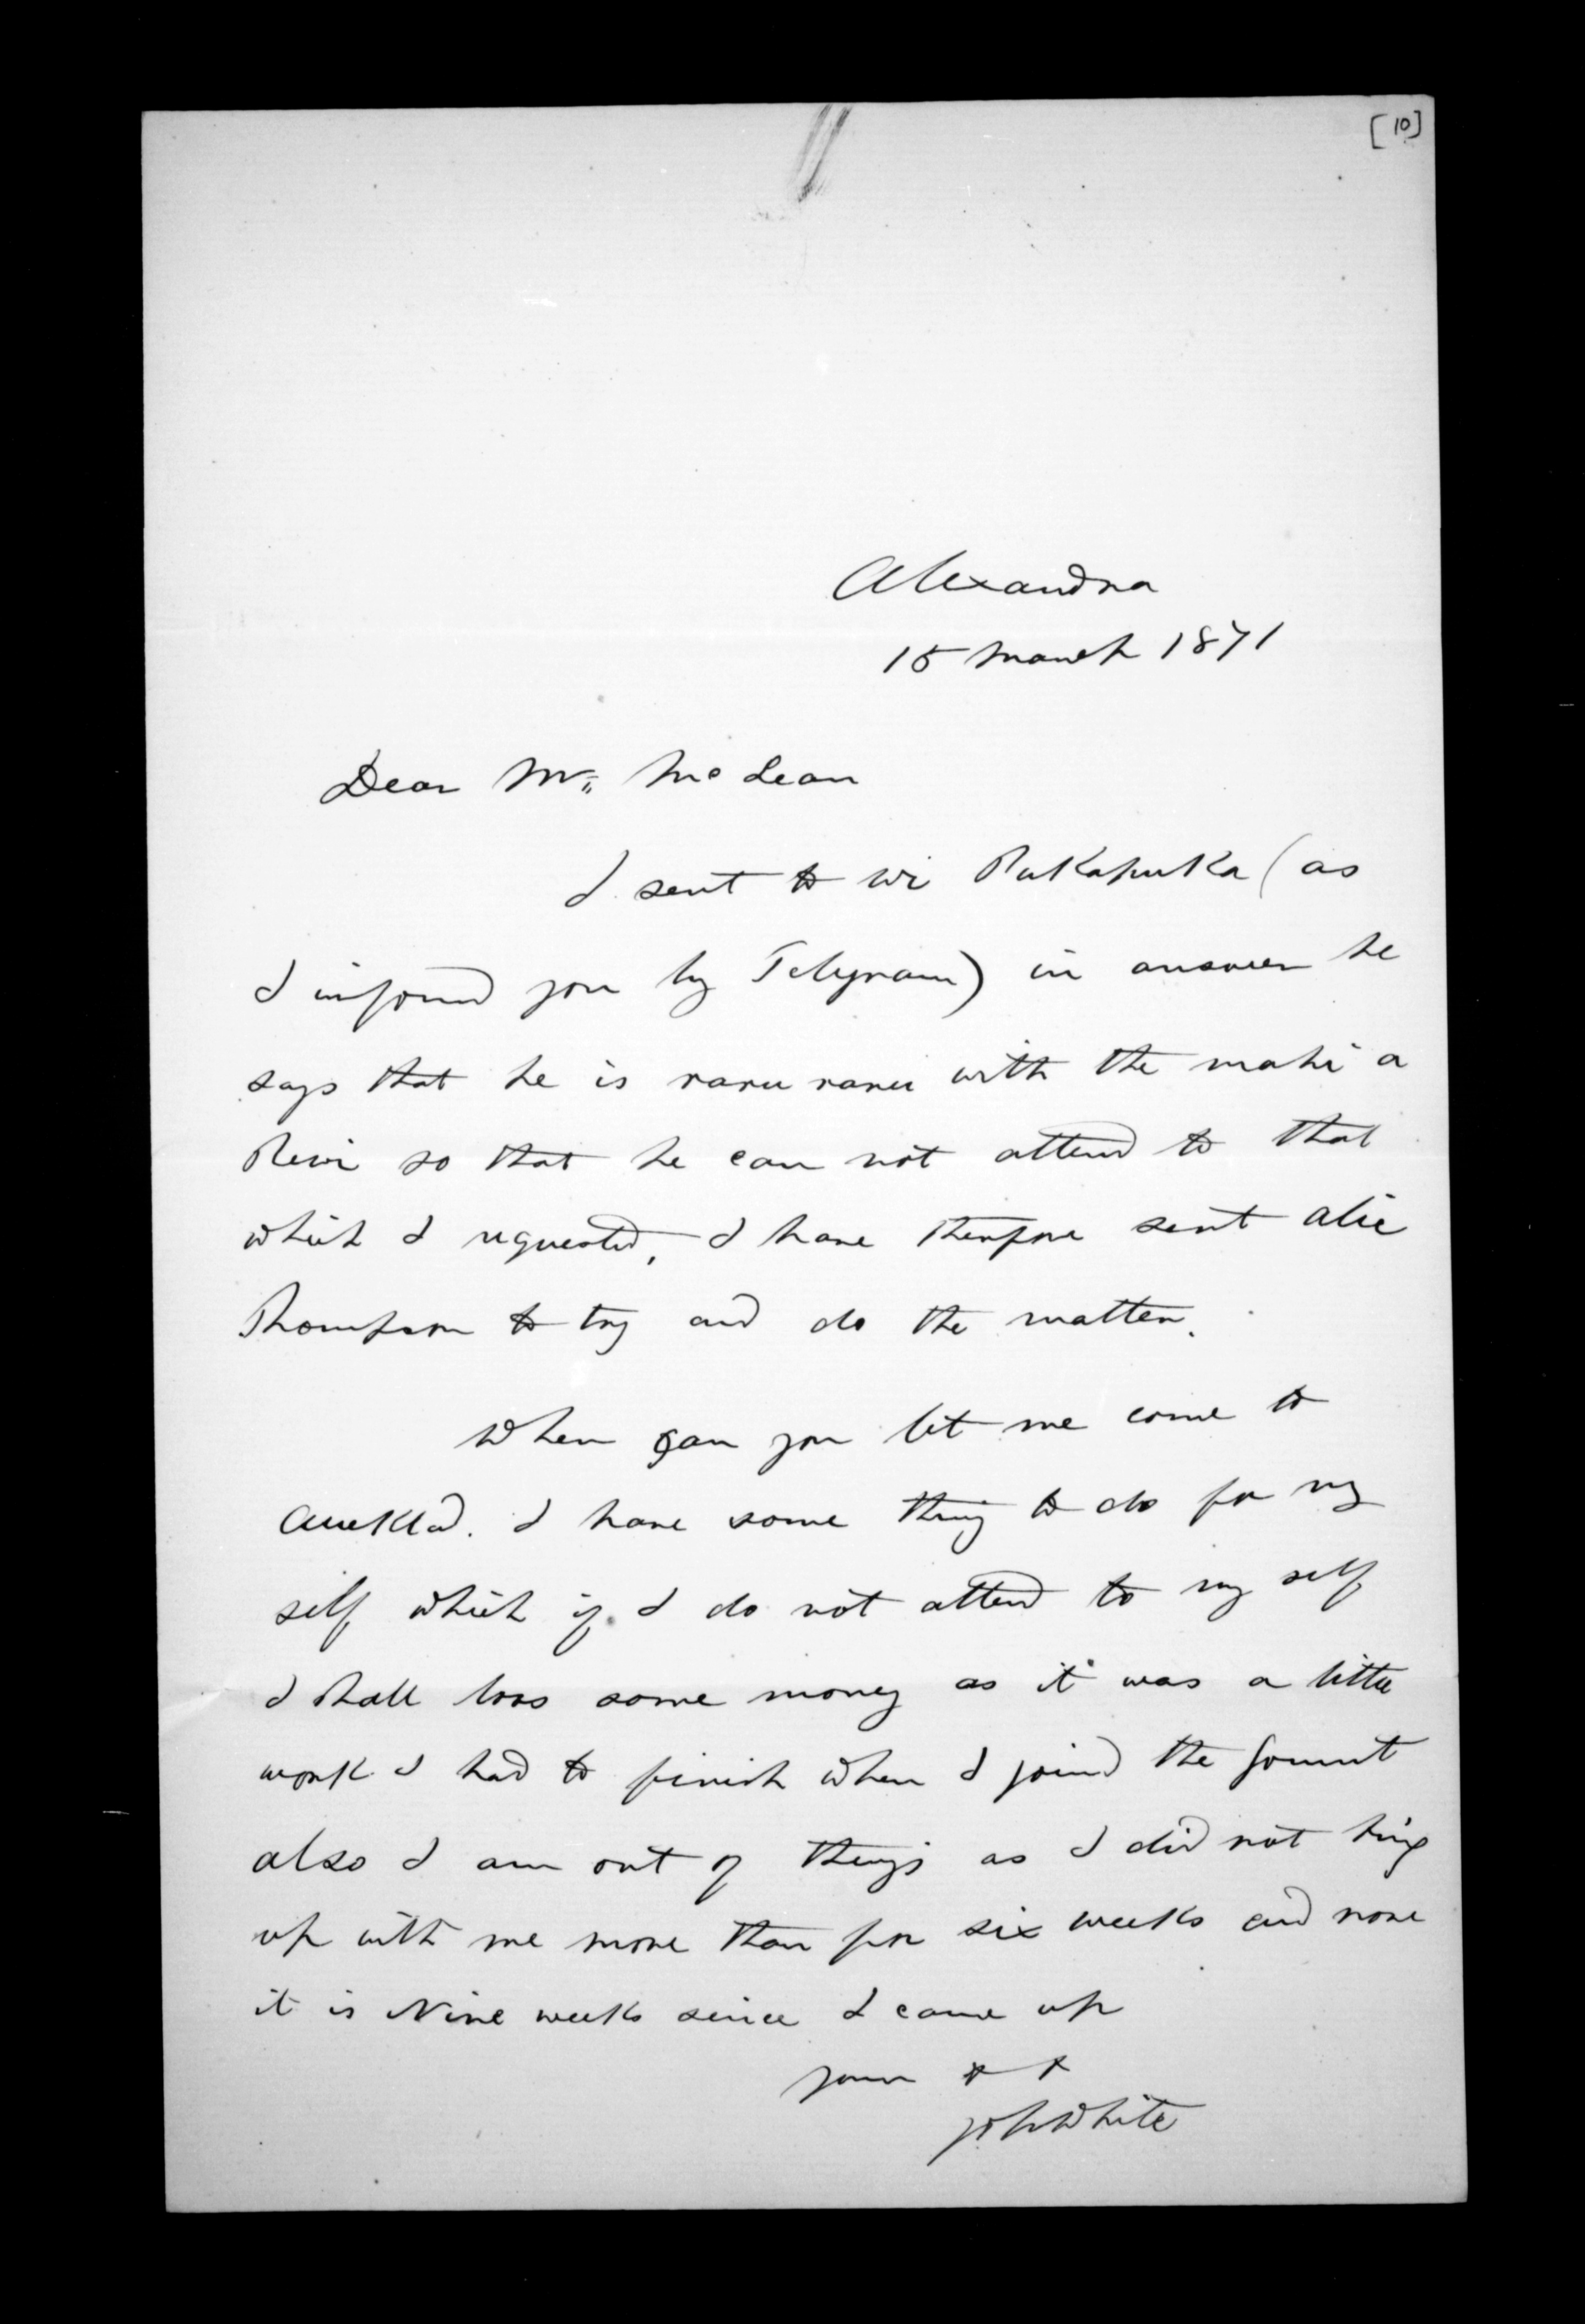 [10]
Alexandra
15 March 1871
Dear Mr. McLean
I sent to Wi Pukapuka (as
I informd you by Telegram) in answer he
says that he is raru raru with the mahi a
Rewi so that he can not attend to that
which I requested, I have therefore sent alie
Thompson to try and do the matter.
When can you let me come to
Auckld. I have some thing to do for my
self which if I do not attend to my self
I shall loos some money as it was a little
work I had to finish when I joind the Govmnt
also I am out of things as I did not bring
up with me more than for six weeks and now
it is Nine weeks since I came up
yours
John White